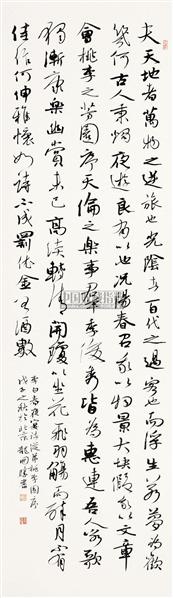 夫天地者萬物之逆旅也光陰者百代之過客也而浮生若夢為歡
幾何古人秉燭夜遊良有以也況陽春召我以景大塊假我以文章
會桃李之芳園序天倫之樂事群季俊秀皆為惠連吾人詠歌
獨慚康樂幽賞未已高談轉清開瓊筵以坐花飛羽觴而醉月不有
佳作何伸雅懷如詩不成罰依金谷酒數
李白春夜宴諸從弟桃李園序
戊子之秋於北京龍開勝書